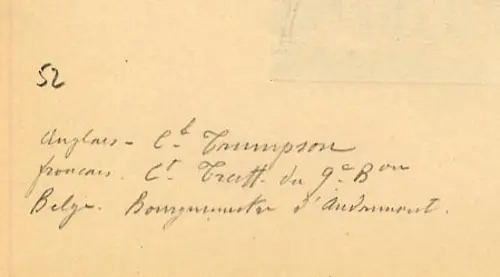 52
Anglais - Ct Trumpson
français. Ct. Tratt. du 9e Bon
Belge. Bourgmestre d'Audremont.